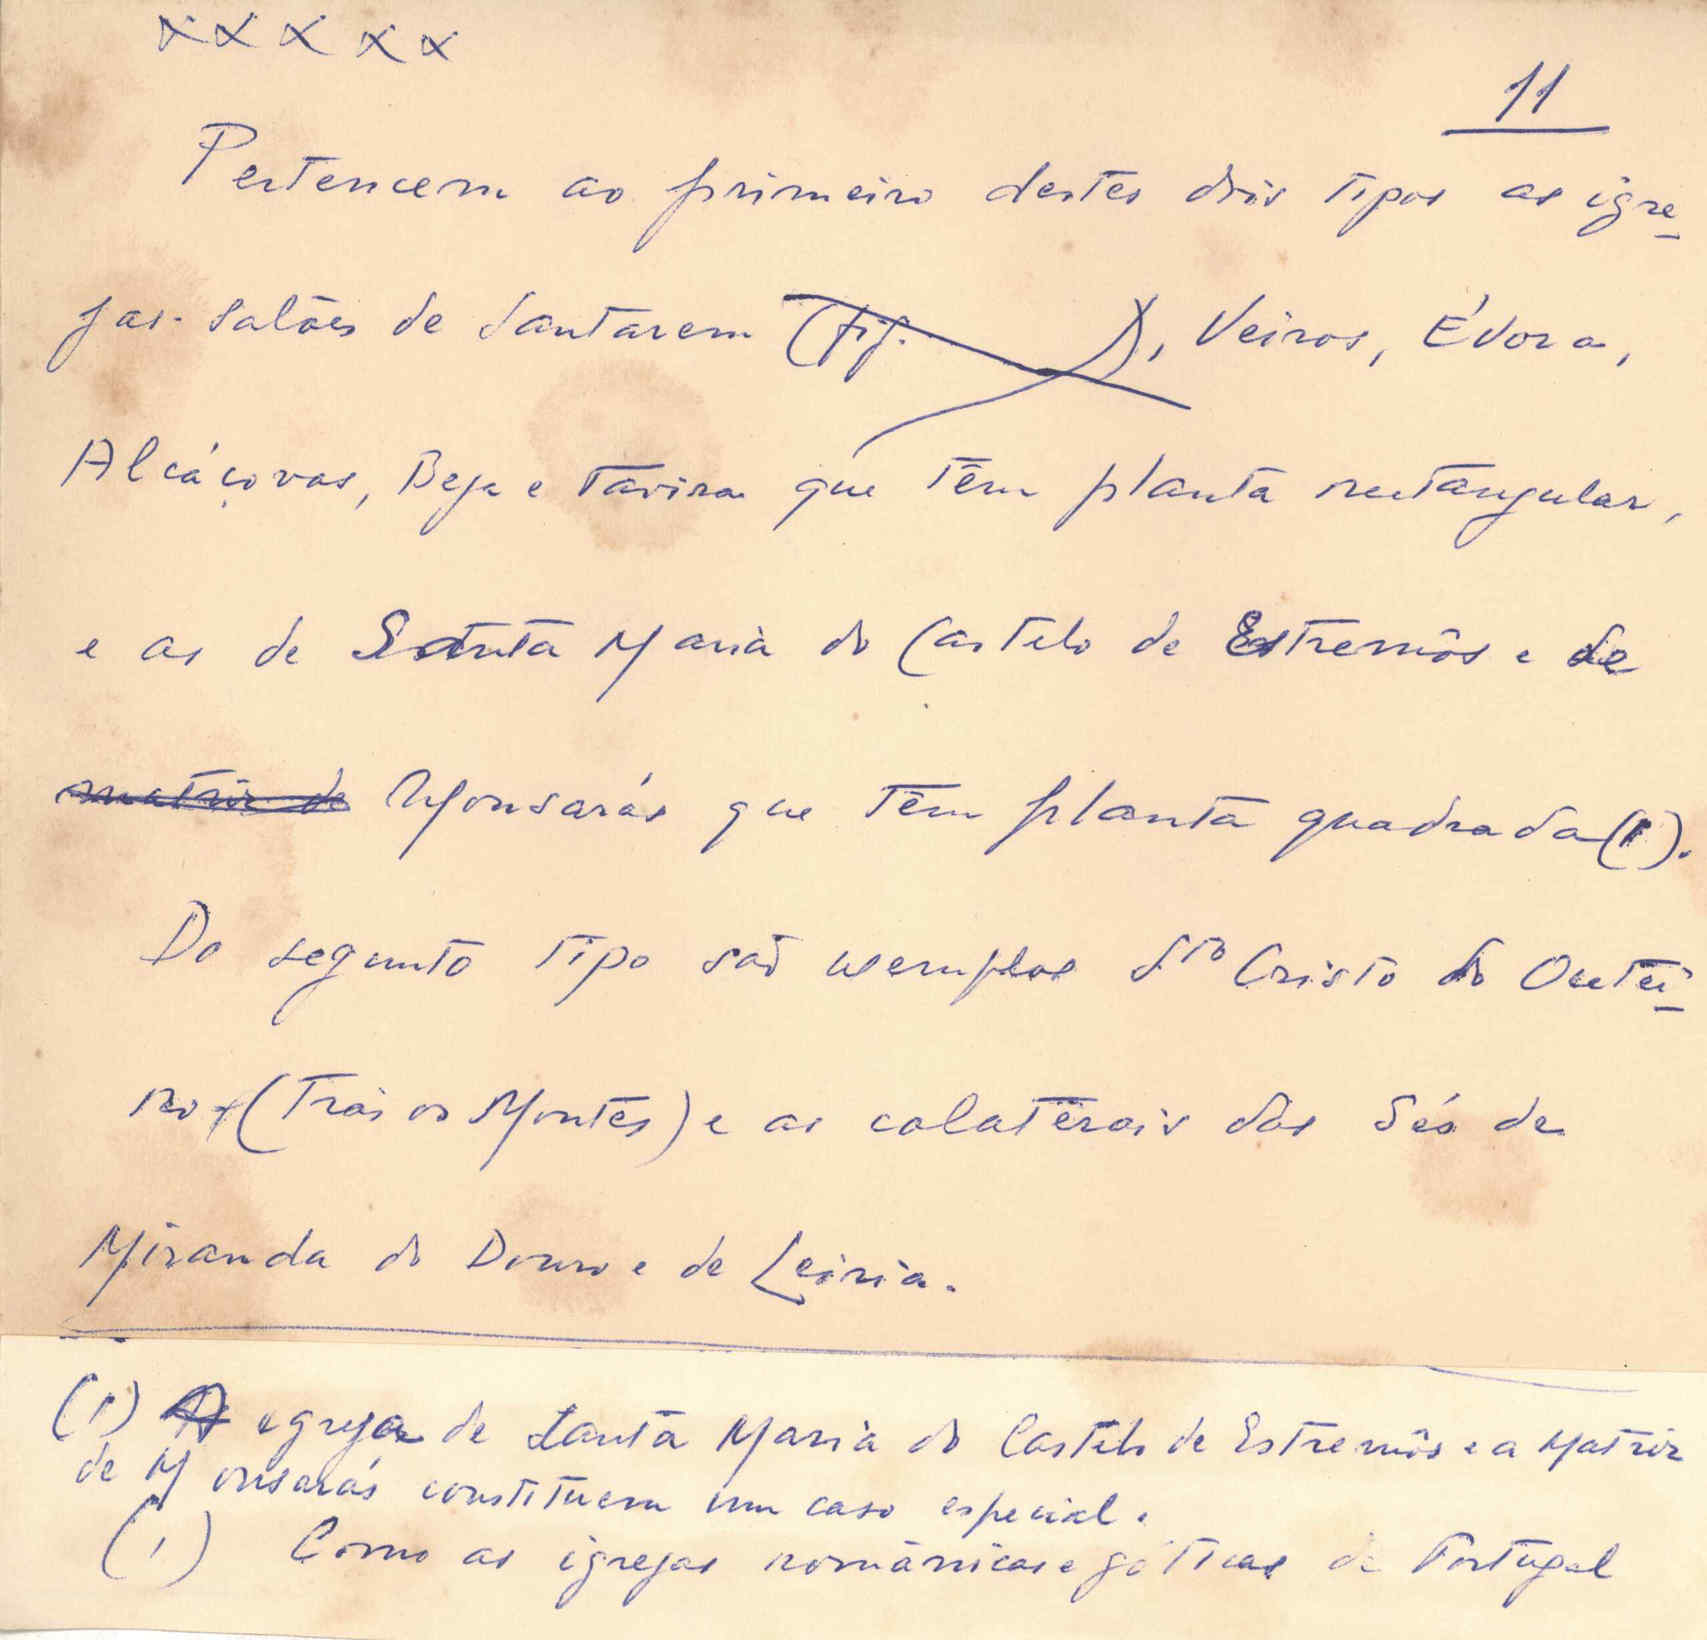 XXXXX
11
Pertencem ao primeiro destes dois tipos as igre-
jas-salões de Santarem (fig. ), Veiros, Évora,
Alcáçovas, Beja e Tavira que têm planta rectangular,
e as de Santa Maria do Castelo de Estremôs e de
matriz de Monsarás que têm planta quadrada (1).
Do segunto tipo são exemplos Sto Cristo do Outei-
ro (Trás os Montes) e as colaterais das Sés de
Miranda do Douro e de Leiria.
(1) A egreja de Santa Maria do Castelo de Estremôs e a Matriz
de Monsarás constituem um caso especial.
(1) Como as igrejas românicas e góticas de Portugal